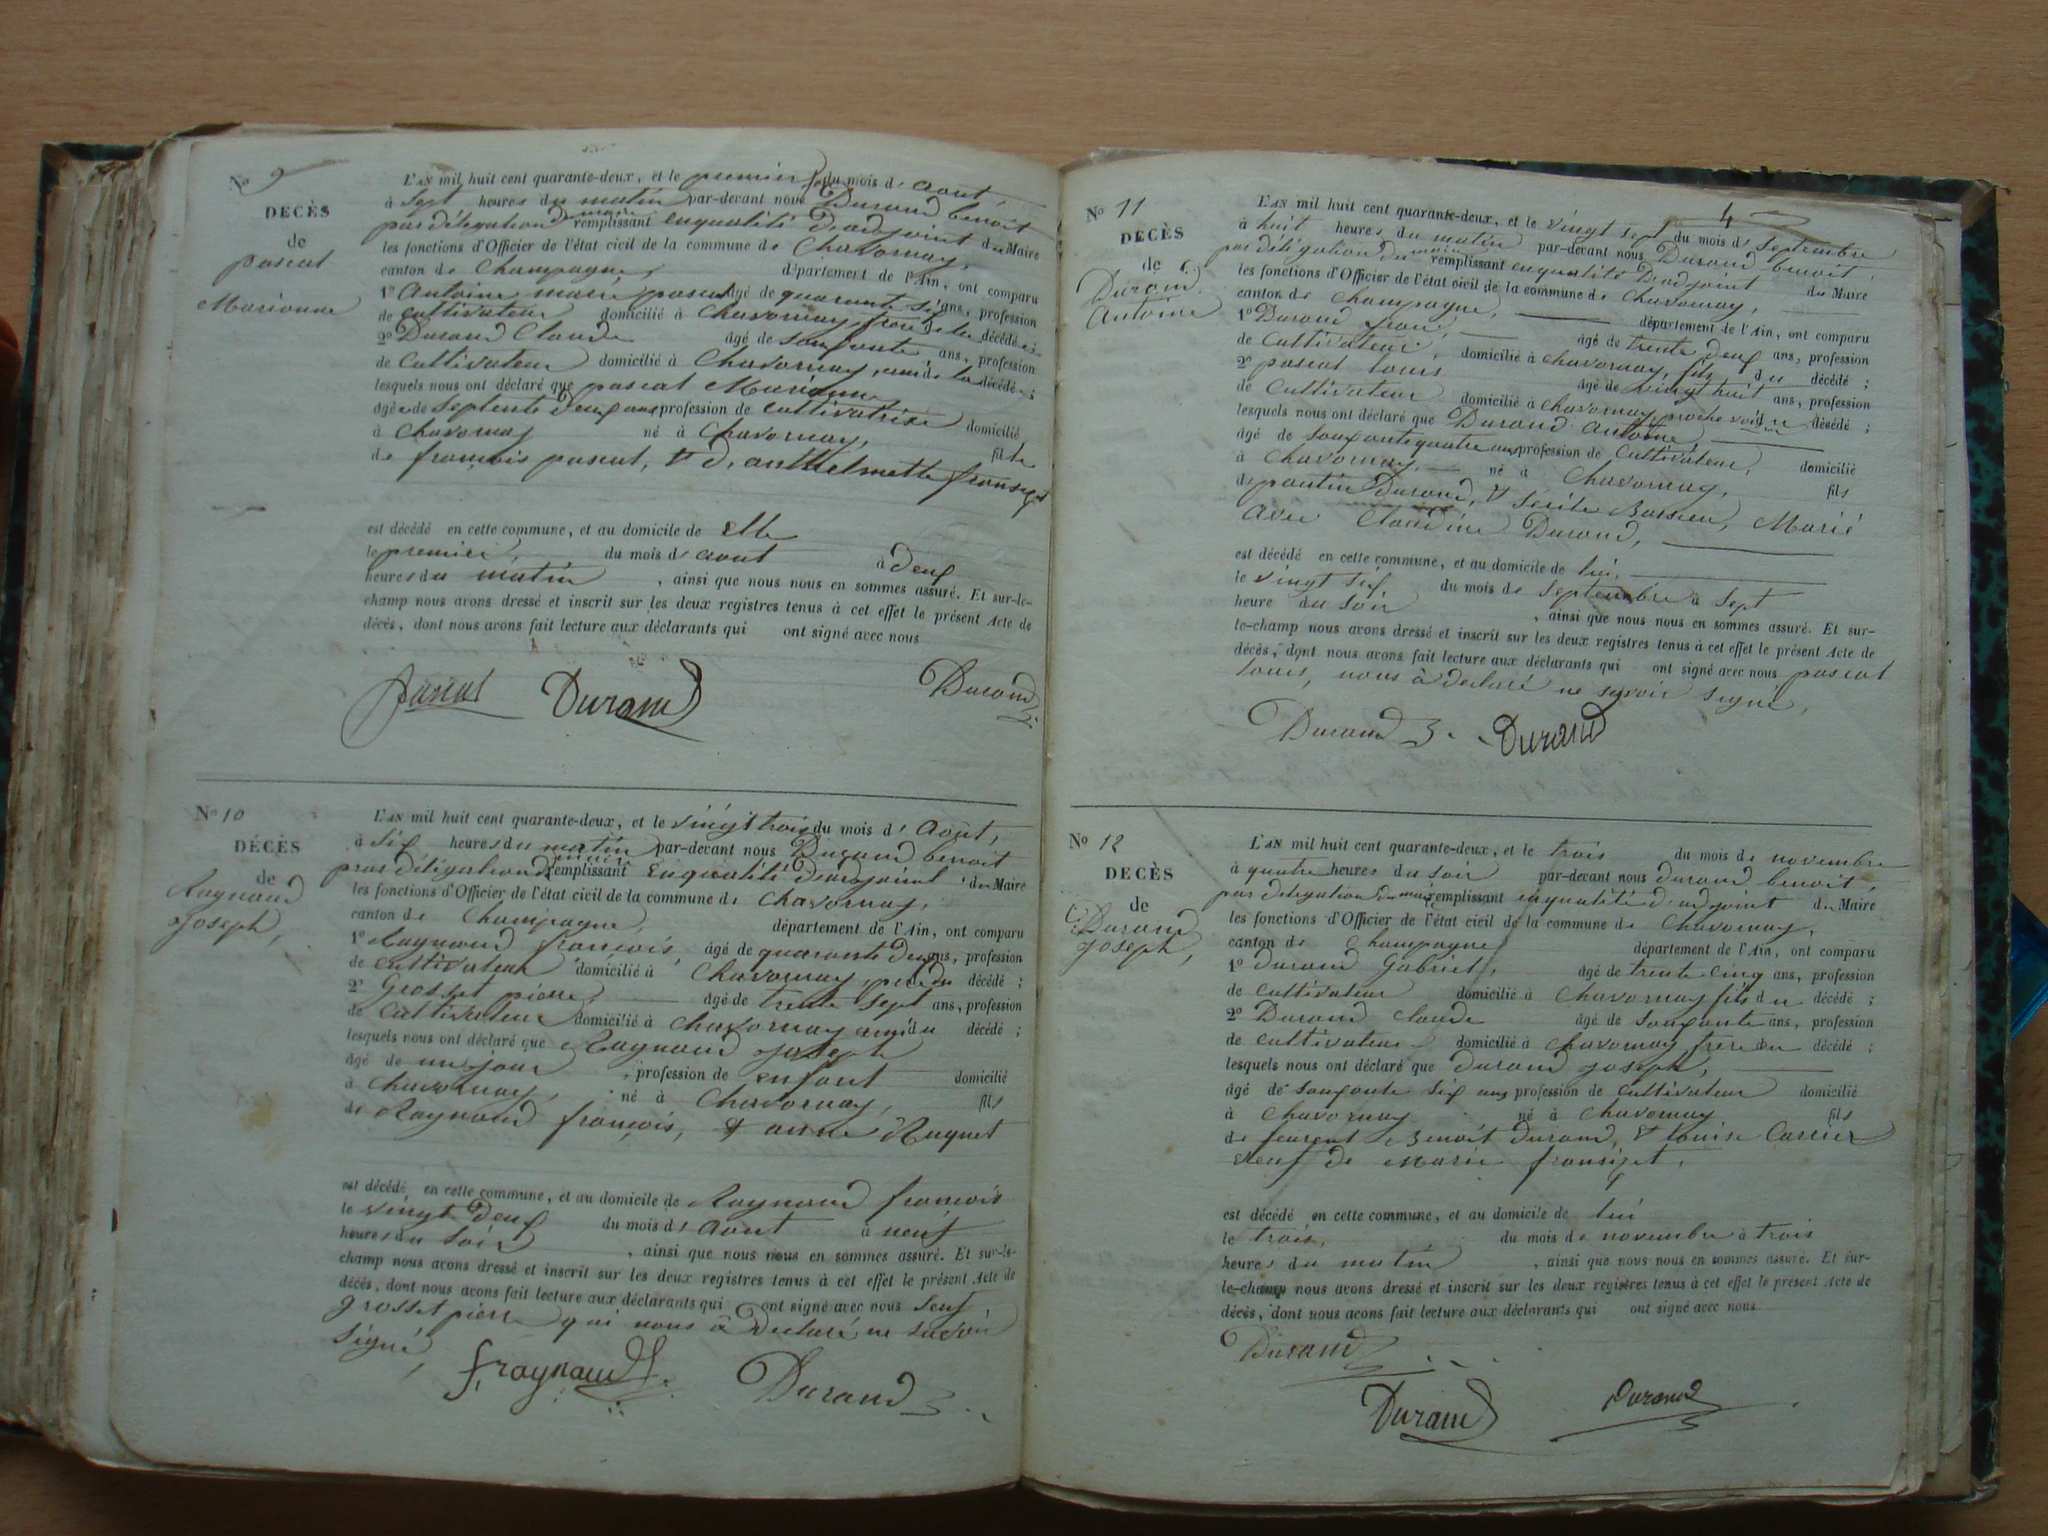 No 9
DECÈS
de
pascal
Marianne
L'AN mil huit cent quarante-deux, et le premier du mois d'août,
à sept heures du matin par-devant nous Durand benoit
par délégation du maire remplissant enqualité d'adjoint du Maire
les fonctions d'Officier de l'état civil de la commune de Chavornay,
canton de Champagne, département de l'Ain, ont comparu
1º Antoine marie pascal âgé de quarante six ans, profession
de cultivateur domicilié à Chavornay, décédée;
2º Durand Claude âgé de soixante ans, profession
de cultivateur domicilié à Chavornay, ami de la décédée;
lesquels nous ont déclaré que pascal Marianne
âgée de septente deux ans profession de cultivatrise domicilié
à Chavornay né à Chavornay, fille
de françois pascal, & d'anthelmette fransiget
est décédé en cette commune, et au domicile de elle
le premier, du mois d'aout à deux
heures du matin, ainsi que nous nous en sommes assuré. Et sur-le-
champ nous avons dressé et inscrit sur les deux registres tenus à cet effet le présent Acte de
décès, dont nous avons fait lecture aux déclarants qui ont signé avec nous
Pascal Durand Durand
No 10
DÉCÈS
de
Raynaud
Joseph,
L'AN mil huit cent quarante-deux, et le vingt trois du mois d'Août,
à six heures du matin par-devant nous Durand benoit
par délégation du maire remplissant enqualité d'adjoint du Maire
les fonctions d'Officier de l'état civil de la commune de Chavornay,
canton de Champagne, département de l'Ain, ont comparu
1º Raynaud françois, âgé de quarante deux ans, profession
de cultivateur domicilié à Chavornay, père du décédé;
2º Grosset pierre, âgé de trente sept ans, profession
de cultivateur domicilié à Chavornay ami du décédé;
lesquels nous ont déclaré que Raynaud Joseph
âgé de un jour, profession de enfant domicilié
à Chavornay, né à Chavornay, fils
de Raynaud françois, & anne Ruquet
est décédé en cette commune, et au domicile de Raynaud francois
le vingt deux du mois d'Aout à neuf
heures du soir, ainsi que nous nous en sommes assuré. Et sur-le-
champ nous avons dressé et inscrit sur les deux registres tenus à cet effet le présent Acte de
décès, dont nous avons fait lecture aux déclarants qui ont signé avec nous seuf,
grosset pierre qui nous à declaré ne savoir
signé,
f, raynaud Durand
4
No 11
DÉCÈS
de
Durand
Antoine
L'AN mil huit cent quarante-deux, et le vingt sept du mois de septembre
à huit heures du matin par-devant nous Durand benoit,
par délégation du maire remplissant enqualité d'adjoint du Maire
les fonctions d'Officier de l'état civil de la commune de Chavornay,
canton de Champagne, département de l'Ain, ont comparu
1º Durand âgé de trente deux ans, profession
de Cultivateur, domicilié à chavornay, fils du décédé;
2º pascal louis âgé de vingt huit ans, profession
de Cultivateur domicilié à chavornay, proche voisin du décédé;
lesquels nous ont déclaré que Durand Antoine,
âgé de soixante quatre ans profession de Cultivateur, domicilié
à Chavornay, né à Chavornay, fils
de Durand, & Bassieu, Marié
avec Claudine Durand,
est décédé en cette commune, et au domicile de lui,
le vingt six du mois de septembre à sept
heure du soir, ainsi que nous nous en sommes assuré. Et sur-
le-champ nous avons dressé et inscrit sur les deux registres tenus à cet effet le présent Acte de
décès, dont nous avons fait lecture aux déclarants qui ont signé avec nous pascal
louis, nous à declaré ne savoir signé,
Durand Durand
No 12
DÉCÈS
de
Durand
Joseph,
L'AN mil huit cent quarante-deux, et le trois du mois de novembre
à quatre heures du soir par-devant nous durand benoit,
par délégation du maire remplissant enqualité d'adjoint du Maire
les fonctions d'Officier de l'état civil de la commune de Chavornay,
canton de Champagne département de l'Ain, ont comparu
1º durand Gabriel, âgé de trente cinq ans, profession
de cultivateur domicilié à Chavornay fils du décédé;
2º Durand Claude âgé de soixante ans, profession
de cultivateur domicilié à Chavornay frère du décédé;
lesquels nous ont déclaré que durand joseph,
âgé de soixante six ans profession de cultivateur domicilié
à Chavornay né à Chavornay fils
de laurent Benoît durand, & louise Carrier
veuf de Marie fransiget,
est décédé en cette commune, et au domicile de lui
le trois, du mois de novembre à trois
heures du matin, ainsi que nous nous en sommes assuré. Et sur-
le-champ nous avons dressé et inscrit sur les deux registres tenus à cet effet le présent Acte de
décès, dont nous avons fait lecture aux déclarants qui ont signé avec nous
Durand
Durand Durand